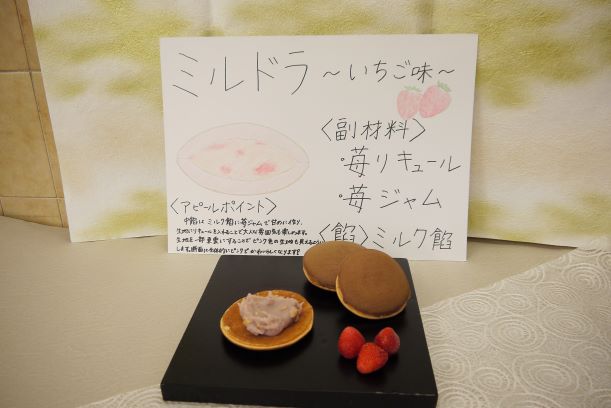 ミルドラ ～いちご味～
〈副材料〉
・苺リキュール
・苺ジャム
〈餡〉ミルク餡
〈アピールポイント〉
中餡は、ミルク餡に苺ジャムで甘めに作り、
生地にリキュールを入れることで大人な雰囲気を楽しめます。
生地を一部重ねにすることでピンク色の生地も見えるように
します。断面も全体的にピンクでかわいらしくなります!